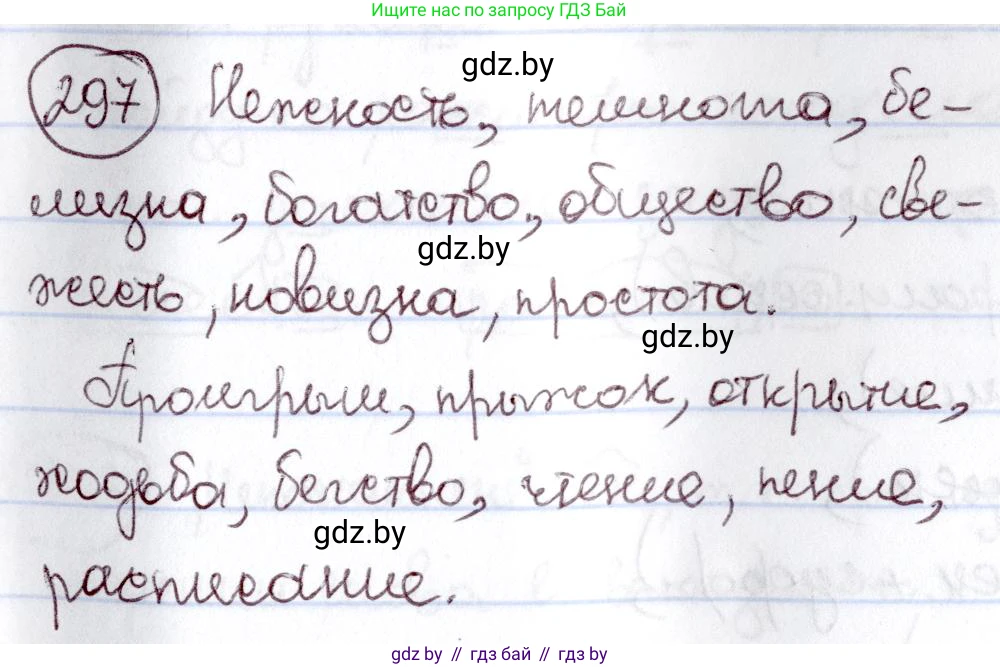 Ищите нас по запросу ГДЗ Бай
gdz.by
297 Нежность, темнота, бе-
лизна, богатство, общество, све-
gdz.by
жесть, новизна, простота.
gdz.by
Проигрыш, прыжок, открытие,
ходьба, бегство, чтение, пение,
gdz.by
расписание.
gdz.by // гдз бай // gdz by